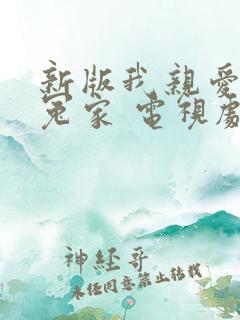 新版我親愛
冤家 電視處
神經哥
未經同意禁止轉載